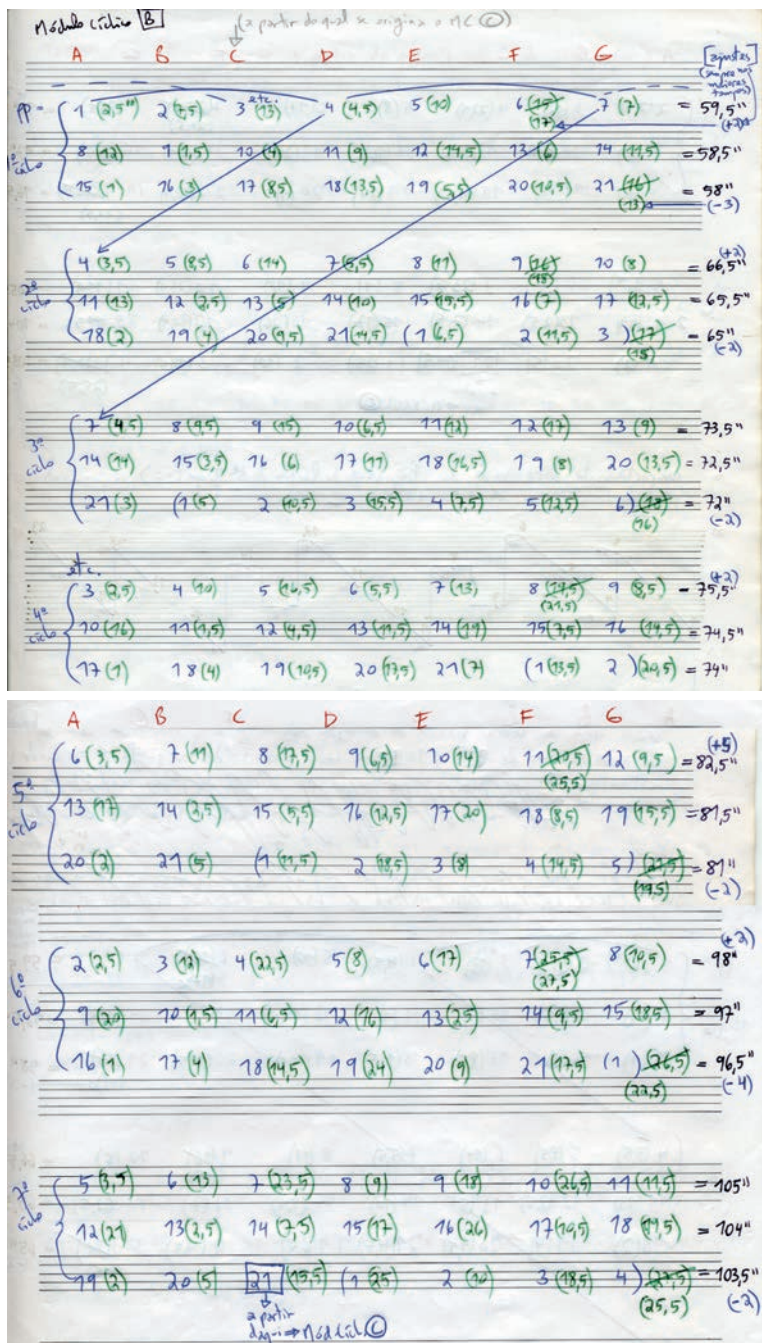 Módulo cíclico B
(a partir do qual se origina o MC C)
A B C D E F G
[ajustes]
etc.
1º ciclo
1 (2,5") 2 (7,5) 3 (13) 4 (4,5) 5 (10) 6 (15) 7 (7) = 59,5"
(17) (+2)
8 (12) 9 (1,5) 10 (4) 11 (9) 12 (14,5) 13 (6) 14 (11,5) = 58,5"
15 (1) 16 (3) 17 (8,5) 18 (13,5) 19 (5,5) 20 (10,5) 21 (16) = 58"
(13) (-3)
2º ciclo
(+2)
4 (3,5) 5 (8,5) 6 (14) 7 (5,5) 8 (11) 9 (16) 10 (8) = 66,5"
(18)
11 (13) 12 (2,5) 13 (5) 14 (10) 15 (15,5) 16 (7) 17 (12,5) = 65,5"
18 (2) 19 (4) 20 (9,5) 21 (14,5) (1 (6,5) 2 (11,5) 3 ) (17) = 65"
(15) (-2)
3º ciclo
7 (4,5) 8 (9,5) 9 (15) 10 (6,5) 11 (12) 12 (17) 13 (9) = 73,5"
14 (14) 15 (3,5) 16 (6) 17 (11) 18 (16,5) 19 (8) 20 (13,5) = 72,5"
21 (3) (1 (5) 2 (10,5) 3 (15,5) 4 (7,5) 5 (12,5) 6 ) (18) = 72"
(16) (-2)
etc.
4º ciclo
(+2)
3 (2,5) 4 (10) 5 (16,5) 6 (5,5) 7 (13) 8 (19,5) 9 (8,5) = 75,5"
(21,5)
10 (16) 11 (1,5) 12 (4,5) 13 (11,5) 14 (19) 15 (7,5) 16 (14,5) = 74,5"
17 (1) 18 (4) 19 (10,5) 20 (17,5) 21 (7) (1 (13,5) 2 ) (20,5) = 74"
A B C D E F G
5º ciclo
(+5)
6 (3,5) 7 (11) 8 (17,5) 9 (6,5) 10 (14) 11 (20,5) 12 (9,5) = 82,5"
(25,5)
13 (17) 14 (2,5) 15 (5,5) 16 (12,5) 17 (20) 18 (8,5) 19 (15,5) = 81,5"
20 (2) 21 (5) (1 (11,5) 2 (18,5) 3 (8) 4 (14,5) 5 ) (21,5) = 81"
(19,5) (-2)
6º ciclo
(+2)
2 (2,5) 3 (12) 4 (22,5) 5 (8) 6 (17) 7 (25,5) 8 (10,5) = 98"
(27,5)
9 (20) 10 (1,5) 11 (6,5) 12 (16) 13 (25) 14 (9,5) 15 (18,5) = 97"
16 (1) 17 (4) 18 (14,5) 19 (24) 20 (9) 21 (17,5) (1 ) (26,5) = 96,5"
(22,5) (-4)
7º ciclo
5 (3,5) 6 (13) 7 (23,5) 8 (9) 9 (18) 10 (26,5) 11 (11,5) = 105"
12 (21) 13 (2,5) 14 (7,5) 15 (17) 16 (26) 17 (10,5) 18 (19,5) = 104"
19 (2) 20 (5) 21 (15,5) (1 (25) 2 (10) 3 (18,5) 4 ) (27,5) = 103,5"
(25,5) (-2)
a partir
daqui → Mód. Cícl. C